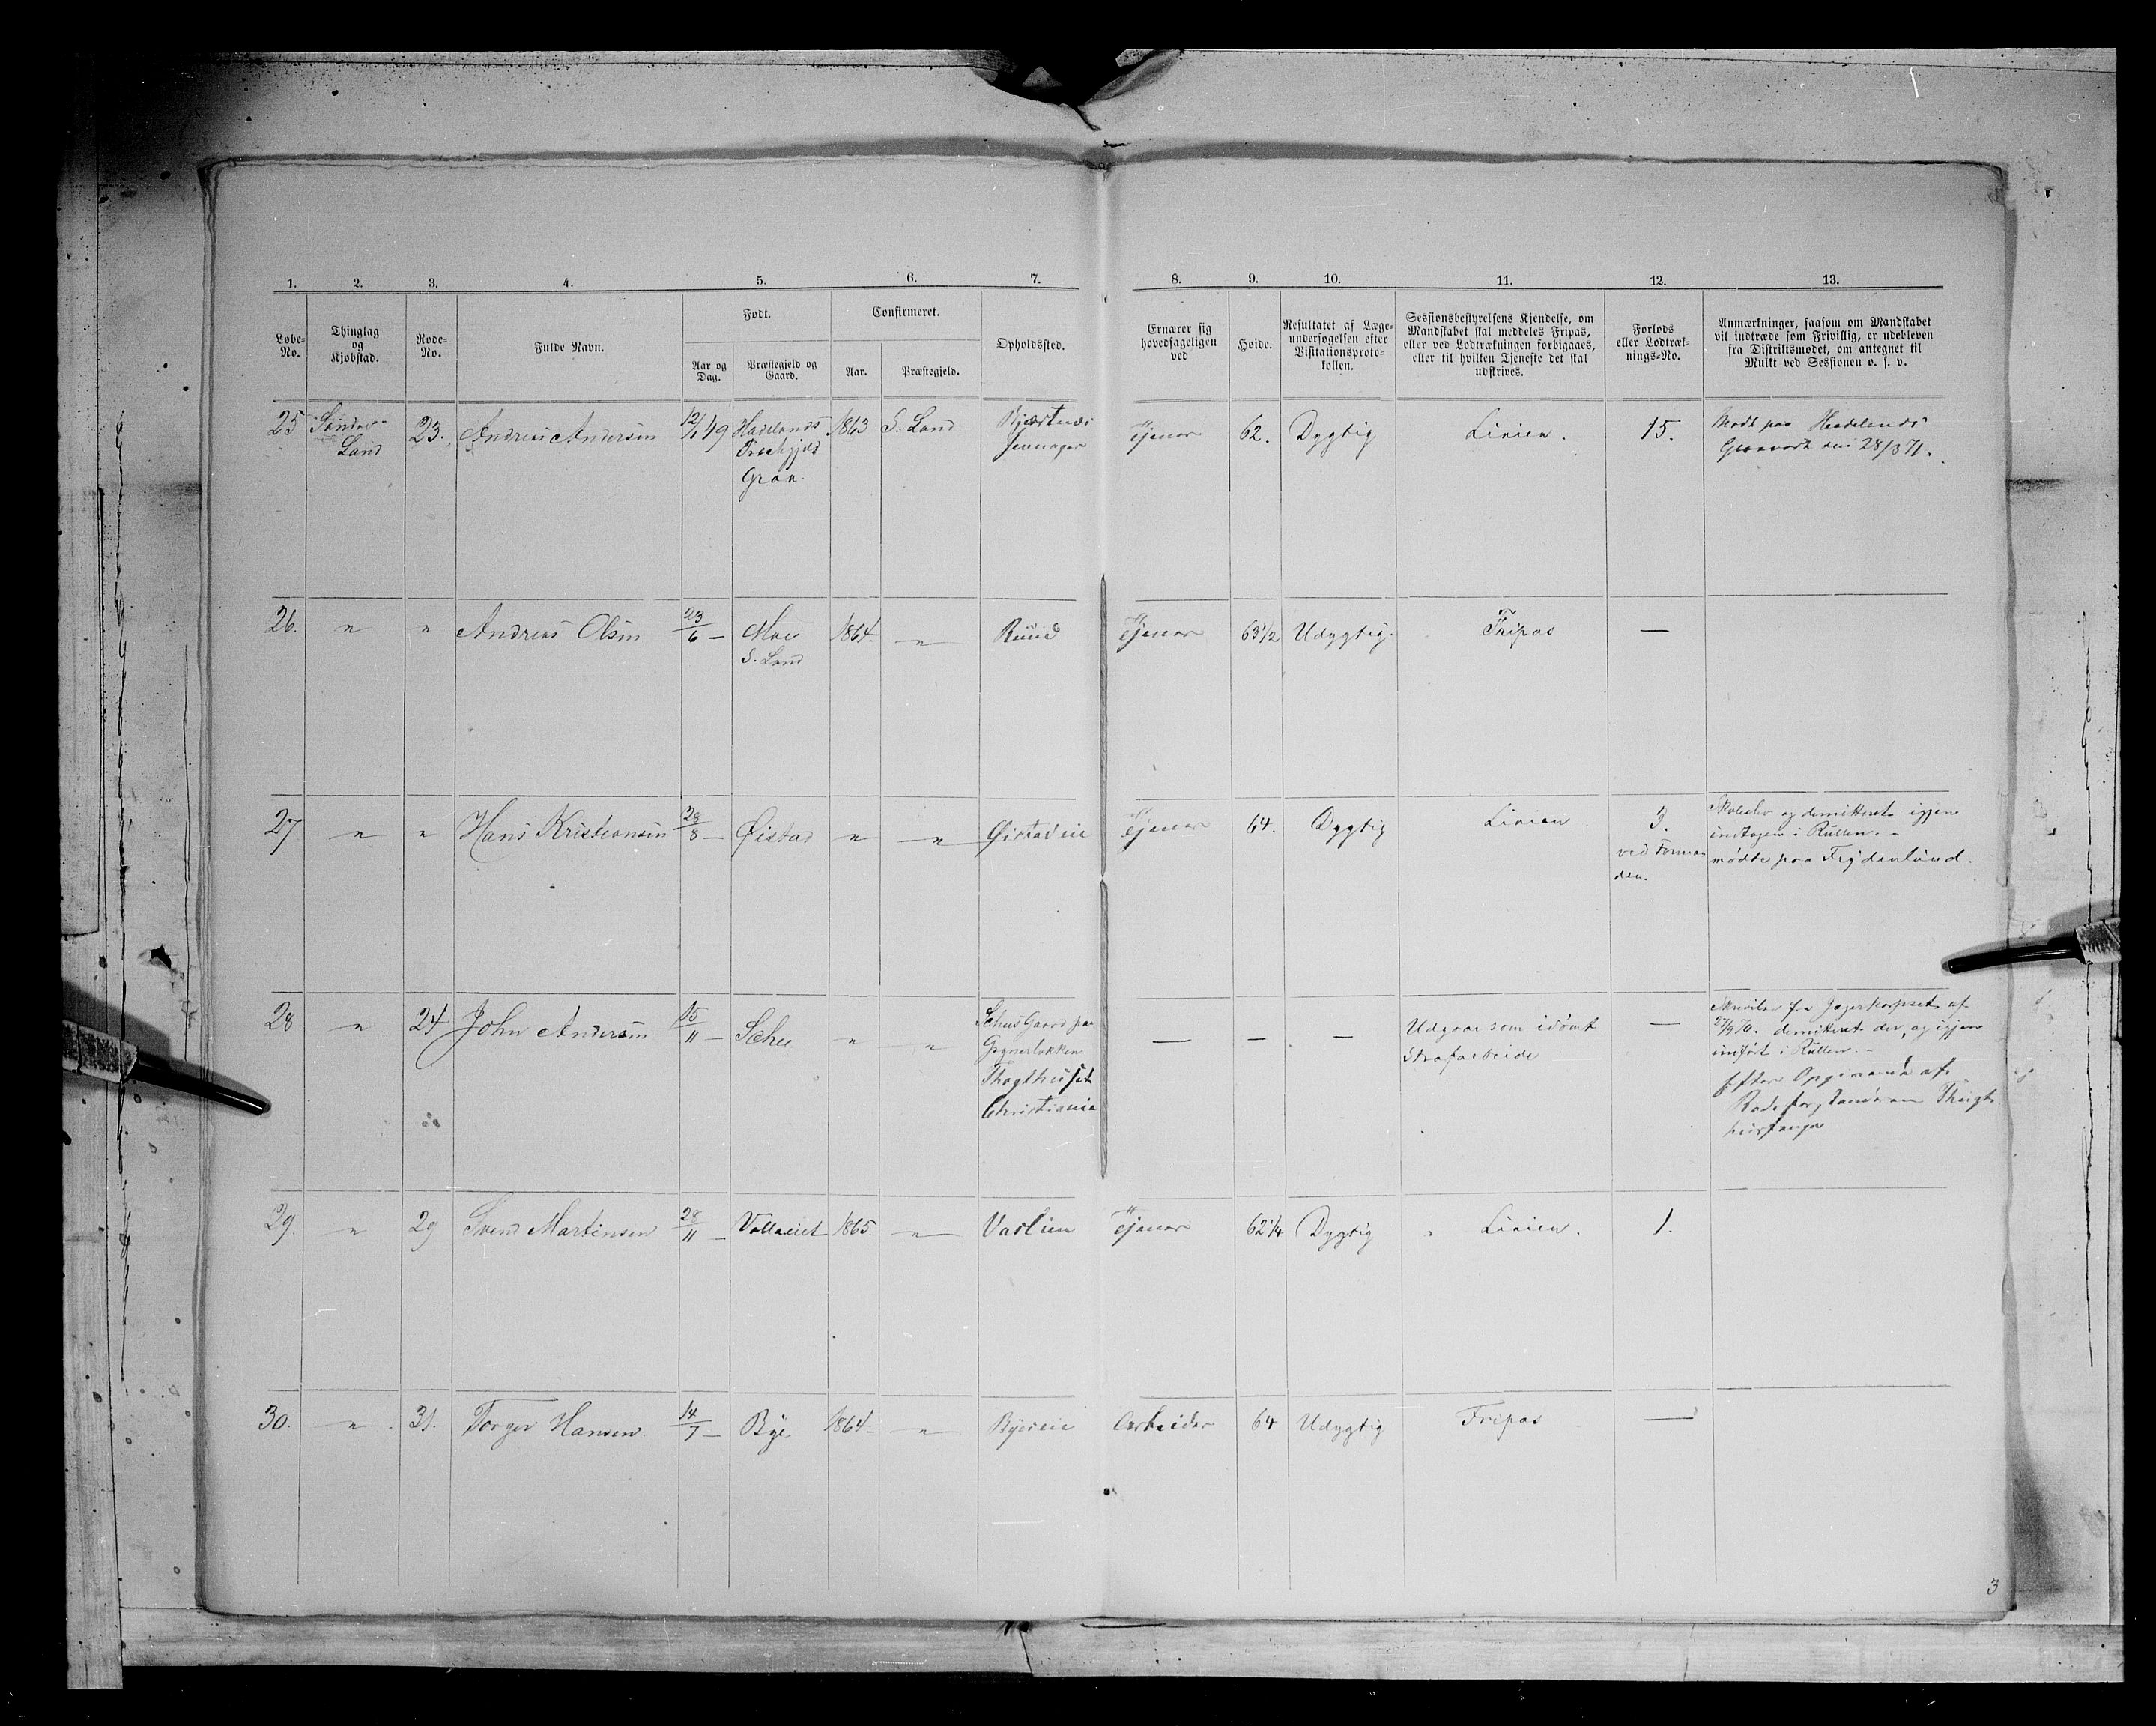 1. 2. 3. 4. 5. 6. 7. 8. 9. 10. 11. 12. 13.
Løbe-No.
Thinglag og Kjøbstad.
Rode-No.
Fulde Navn.
Født.
Aar og Dag.
Præstegjeld og Gaard.
Confirmeret.
Aar.
Præstegjeld.
Opholdssted.
Ernærer sig hovedsageligen ved
Høide.
Resultatet af Læge-undersøgelsen efter Visitationsproto-kollen.
Sessionsbestyrelsens Kjendelse, om Mandskabet skal meddeles Fripas, eller ved Lodtrækningen forbigaaes, eller til hvilken Tjeneste det skal udskrives.
Forlods eller Lodtræk-nings-No.
Anmærkninger, saasom om Mandskabet vil indtræde som Frivillig, er udebleven fra Distriktsmødet, om antegnet til Mulkt ved Sessionen o. s. v.
25 Søndre-Land 23. Andreas Andersen 12/1 49 Hadelands Præstegjeld Gran. 1863 S. Land Tjener 62. Dygtig Linien. 15. Mødt paa Hadelands
den 28/3 71.
26. " " Andreas Olsen 23/6 – Moe S. Land 1864. – " – Ruud Tjener 63 1/2 Udygtig. Fripas —
27 – " – " Hans Kristiansen 28/8 – Øistad – " – – " – Øistadeie Tjener 64. Dygtig Linien 3.
ved Forman
den.
og demitteret igjen
indtagen i Rullen. –
mødte paa Frydenlund.
28 – " – 24 John Andersen 15/11 – Schee " " Gaard paa
Grynerløkken
Thugthuset
Christiania
— – – Udgaar som idømt
Strafarbeide —
fra Jægerkorpset af
demitteret der, og igjen
indført i Rullen. –
Efter Opgivende af
Rodeforstanderen Thugt-
husfange
29. – " – 29 Svend Martinsen 28/11 – Vollaeiet 1865. – " – Vaslien Tjener 62 1/4 Dygtig Linien. 1.
30. – " – 31. Torger Hansen 14/7 – Bye 1864 – – " – Byeeie Arbeider 64 Udygtig Fripas —
3